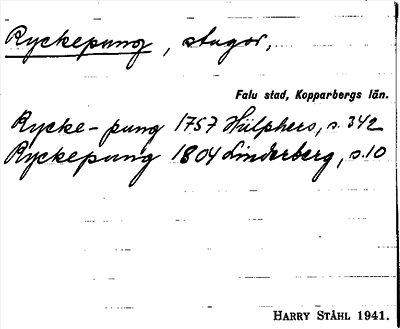 Ryckepung, stugor,
Falu stad, Kopparbergs län.
Rycke-pung 1757 Hülphers, s. 342
Ryckepung 1804 Linderberg, s. 10
HARRY STÅHL 1941.